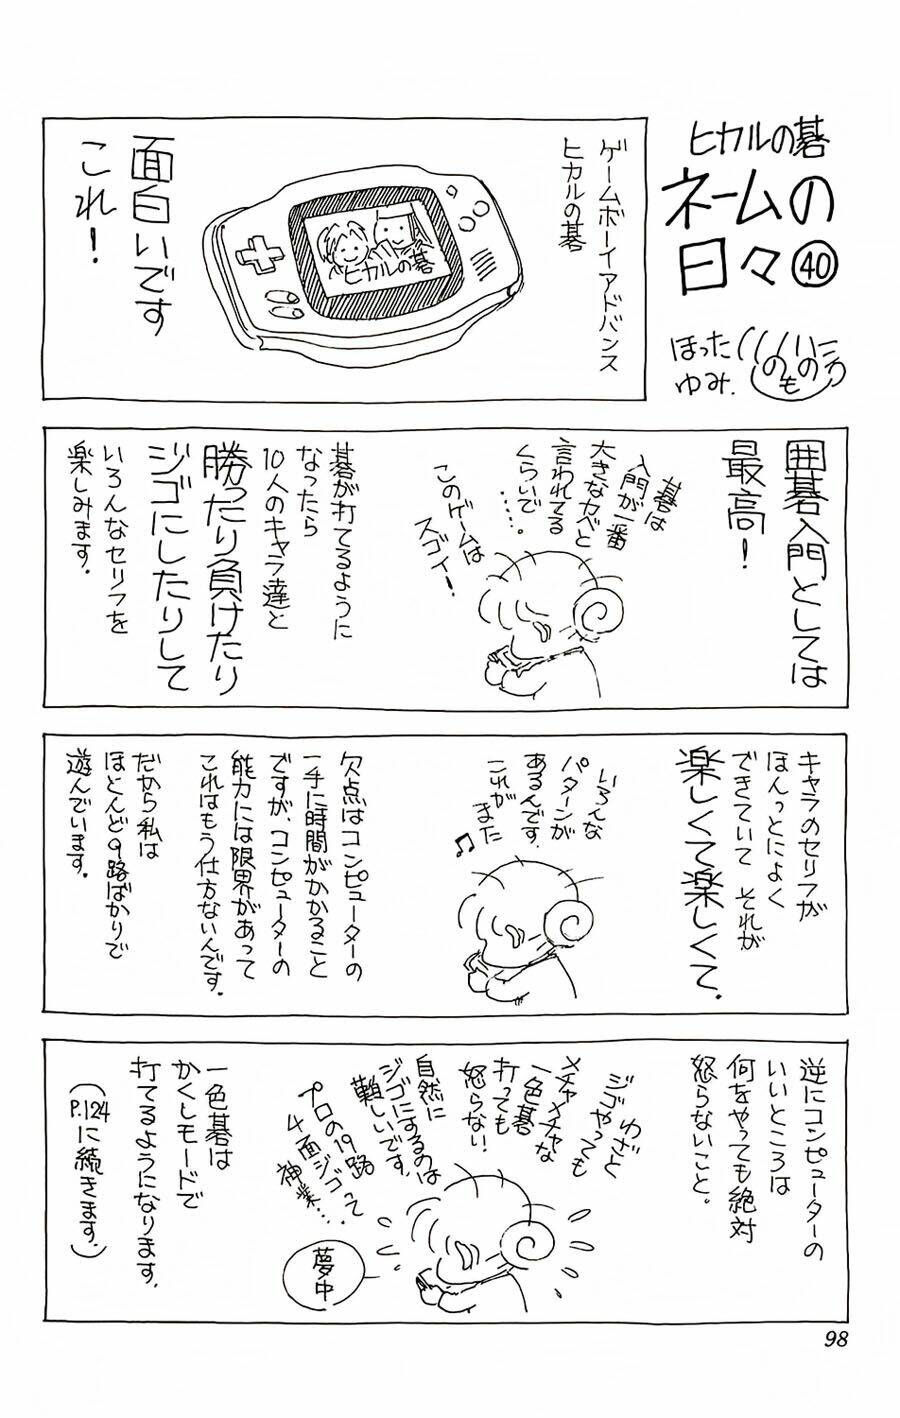 ヒカルの碁
ネームの
日々㊵
ほった
ゆみ.
ゲームボーイアドバンス
ヒカルの碁
ヒカルの碁
面白いです
これ!
囲碁入門としては
最高!
碁は
入門が一番
大きなカベと
言われてる
くらいで
……。
このゲームは
スゴイ!
碁が打てるように
なったら
10人のキャラ達と
勝ったり負けたり
ジゴにしたりして
いろんなセリフを
楽しみます.
キャラのセリフが
ほんっとによく
できていて それが
楽しくて楽しくて.
いろんな
パターンが
あるんです.
これが
また
♫
欠点はコンピューターの
一手に時間がかかること
ですが、コンピューターの
能力には限界があって
これはもう仕方ないんです.
だから私は
ほとんど9路ばかりで
遊んでいます.
逆にコンピューターの
いいところは
何をやっても絶対
怒らないこと。
わざと
ジゴやっても
メチャメチャな
一色碁
打っても
怒らない!
自然に
ジゴにするのは
難しいです.
プロの19路
4面ジゴって
神業….
夢中
一色碁は
かくしモードで
打てるようになります.
(P.124に続きます.)
98